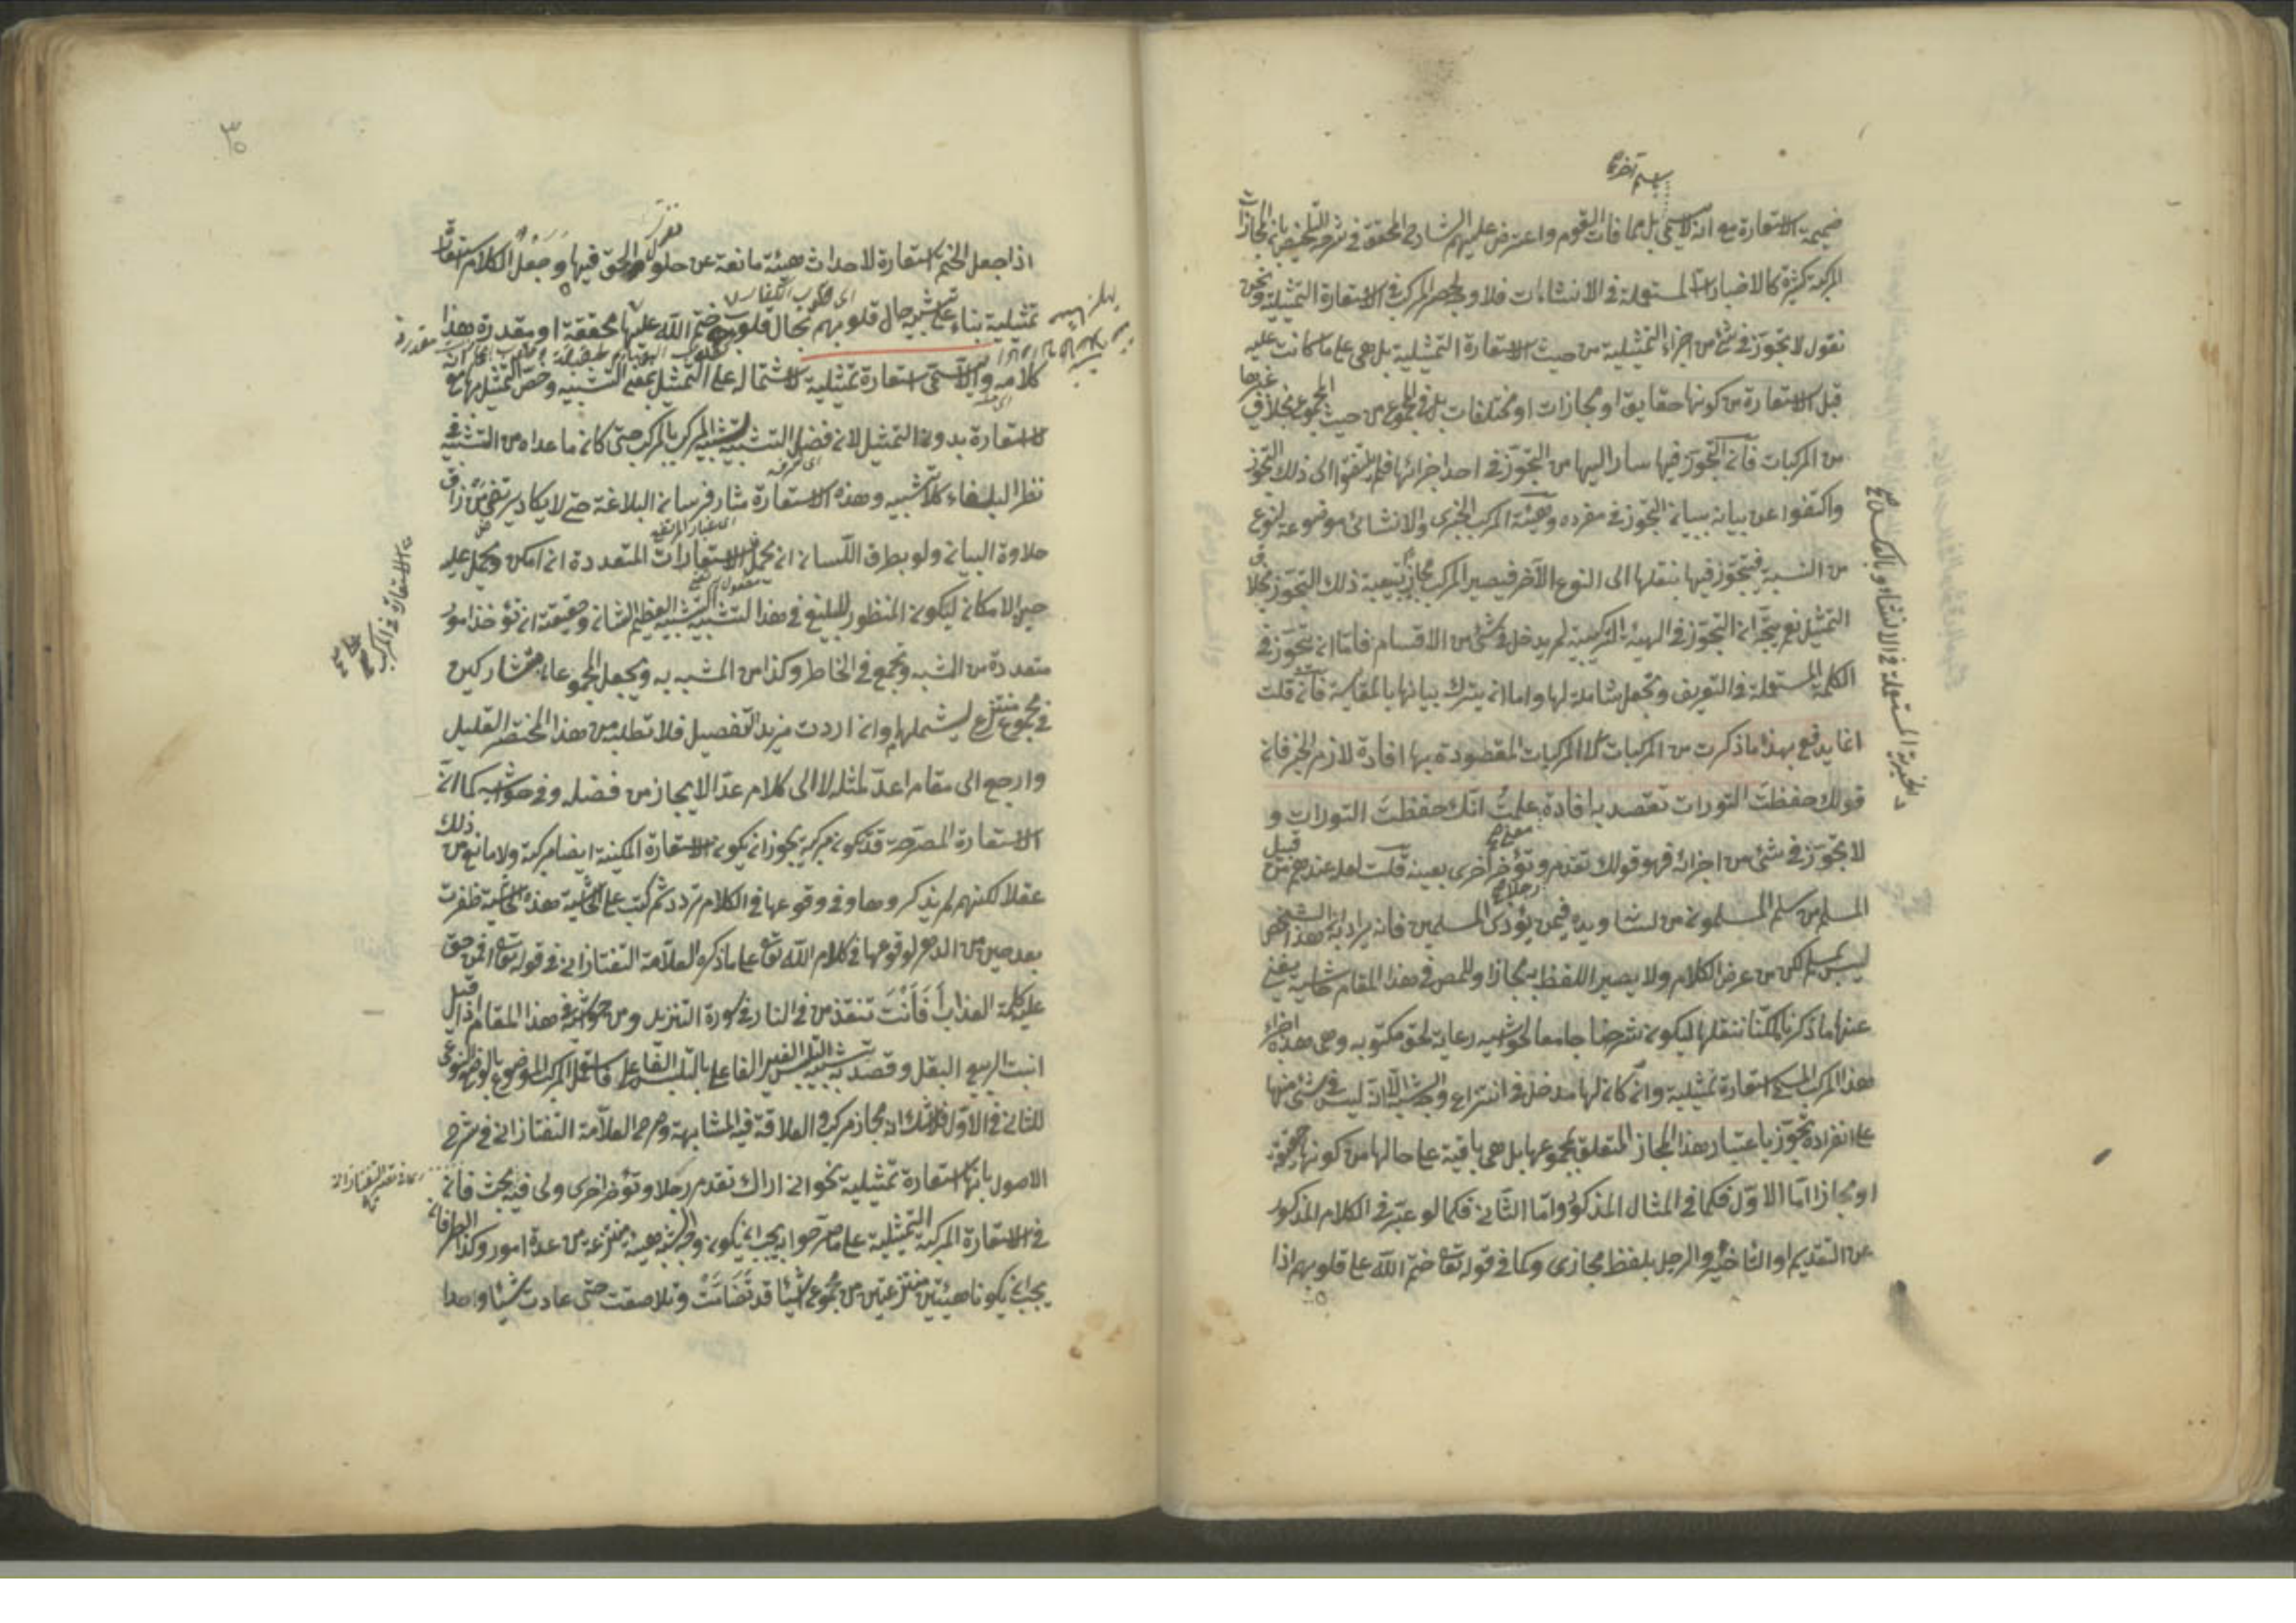 ضميمة الاستعارة مع انه لا يسمى بل مما فات القوم واعترض عليهم الشارح المحقق في شرح التلخيص بان المجازات
المركبة كثيرة كالاخبارات المستعملة في الانشاءات فلا وجه لحصر المركب في الاستعارة التمثيلية ونحن
نقول لا تجوز في شئ من اجزاء التمثيلية من حيث الاستعارة التمثيلية بل هي على ما كانت عليه
قبل الاستعارة من كونها حقايق او مجازات او مختلفات بل في المجموع من حيث المجموع بخلاف غيرها
من المركبات فان التجوز فيها سار اليها من التجوز في احد اجزائها فلم يلتفتوا الى ذلك التجوز
واكتفوا عن بيانه ببيان التجوز في مفرده وهيئة المركب الخبري والانشائي موضوعة لنوع
من النسبة فتجوز فيها بنقلها الى النوع الآخر فيصير المركب مجازا بتبعية ذلك التجوز بخلاف
التمثيل نعم يتجه ان التجوز في الهيئة التركيبية لم يدخل في شئ من الاقسام فاما ان يتجوز في
الكلمة المستعملة في التعريف وتجعل شاملة لها واما ان يترك بيانها بالمقايسة فان قلت
انما يدفع بهذا ما ذكرت من المركبات لا المركبات المقصودة بها افادة لازم الخبر فان
قولك حفظت التورات تقصد به افادة علمت انك حفظت التورات و
لا تجوز في شئ من اجزائه فهو وقولك تقدم رجلا وتؤخر اخرى بعينه قلت لعله عندهم من قبيل
المسلم من سلم المسلمون من لسانه ويده فيمن يؤذى المسلمين فانه يراد به ان هذا الشخص
ليس بمسلم لكن من عرض الكلام ولا يصير اللفظ به مجازا وللمص في هذا المقام حاشية يغني
عنها ما ذكرنا لكننا ننقلها ليكون شرحنا جامعا لحواشيه رعاية لحق مكتوبه وهي هذه اجزاء
هذا المركب المسمى استعارة تمثيلية وان كان لها مدخل في انتزاع وجه الشبه الا انه ليس في شئ منها
على انفراده تجوز باعتبار هذا المجاز المتعلق بمجموعها بل هي باقية على حالها من كونها حقيقة
او مجازا اما الاول فكما في المثال المذكور واما الثاني فكما لو عبر في الكلام المذكور
عن التقديم او التاخير والرجل بلفظ مجازي وكما في قوله تعالى ختم الله على قلوبهم اذا
٣٥
اذا جعل الختم استعارة لاحداث هيئة مانعة عن حلول الحق فيها وجعل الكلام استعارة
تمثيلية بناء على تشبيه حال قلوبهم بحال قلوب ختم الله عليها محققة او مقدرة هذا
كلامه والا تسمى استعارة تمثيلية لاشتماله على التمثيل بمعنى التشبيه وخص التمثيل بها مع
الاستعارة بدون التمثيل لان فضل التشبيه تشبيه المركب بالمركب حتى كان ما عداه من التشبيه في
نظر البلغاء كلا تشبيه وهذه الاستعارة مثار فرسان البلاغة حتى لا يكاد يرتضى من ذاق
حلاوة البيان ولو بطرف اللسان ان يحمل الاستعارات المتعددة ان امكن وحمل عليه
حين الامكان ليكون المنظور للبليغ في هذا التشبيه التشبيه العظيم الشان وحقيقته ان تؤخذ امور
متعددة من المشبه وتجمع في الخاطر وكذا من المشبه به وتجعل المجموعان متشاركين
في مجموع منتزع يشملها وان اردت مزيد التفصيل فلا تطلبه من هذا المختصر القليل
وارجع الى مقام اعد لمثله لا الى كلام عد الايجاز من فضله وفي حواشيه كما ان
الاستعارة المصرحة قد تكون مركبة يجوز ان يكون الاستعارة المكنية ايضا مركبة ولا مانع من ذلك
عقلا لكنهم لم يذكروها وفي وقوعها في الكلام تردد ثم كتب على الحاشية هذه الحاشية ظفرت
بعد حين من الدهر لوقوعها في كلام الله تعالى على ما ذكره العلامة التفتازاني في قوله تعالى افمن حق
عليه كلمة العذاب أفأنت تنقذ من في النار في سورة التنزيل ومن حواشيه في هذا المقام اذا قيل
انبت الربيع البقل وقصد به تشبيه التلبس الغير الفاعلي بالتلبس الفاعلي فاستعمل المركب الموضوع بالوضع النوعي
للثاني في الاول فلا شك انه مجاز مركب والعلاقة فيه المشابهة وصرح العلامة التفتازاني في شرح
الاصول بانها استعارة تمثيلية نحو اني اراك تقدم رجلا وتؤخر اخرى ولي فيه بحث فان
في الاستعارة المركبة التمثيلية على ما صرحوا به يجب ان يكون وجه الشبه هيئة منتزعة من عدة امور وكذا الطرفان
يجب ان يكونا هيئتين منتزعتين من مجموع اشياء قد تضامت وتلاصقت حتى عادت شيئا واحدا